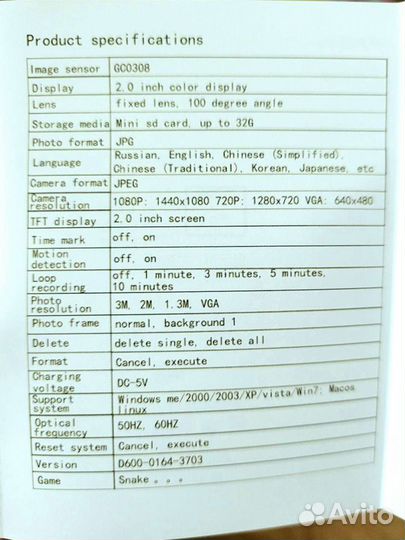 Product specifications
Image sensor GC0308
Display 2.0 inch color display
Lens fixed lens, 100 degree angle
Storage media Mini sd card, up to 32G
Photo format JPG
Language Russian, English, Chinese (Simplified),
Chinese (Traditional), Korean, Japanese, etc
Camera format JPEG
Camera
resolution 1080P: 1440x1080 720P: 1280x720 VGA: 640x480
TFT display 2.0 inch screen
Time mark off, on
Motion
detection off, on
Loop
recording off, 1 minute, 3 minutes, 5 minutes,
10 minutes
Photo
resolution 3M, 2M, 1.3M, VGA
Photo frame normal, background 1
Delete delete single, delete all
Format Cancel, execute
Charging
voltage DC-5V
Support
system Windows me/2000/2003/XP/vista/Win7; Macos
linux
Optical
frequency 50HZ, 60HZ
Reset system Cancel, execute
Version D600-0164-3703
Game Snake 。。。
Avito